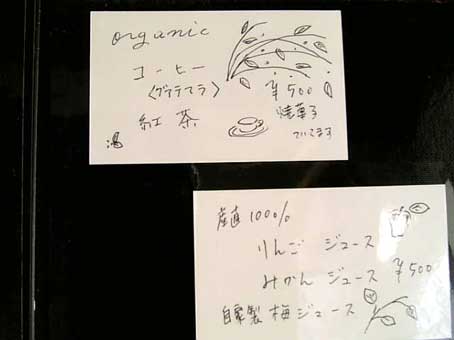 organic
コーヒー
〈グァテマラ〉
¥500
紅茶
焼菓子
ついてます
産直100%
りんごジュース
みかんジュース ¥500
自家製梅ジュース